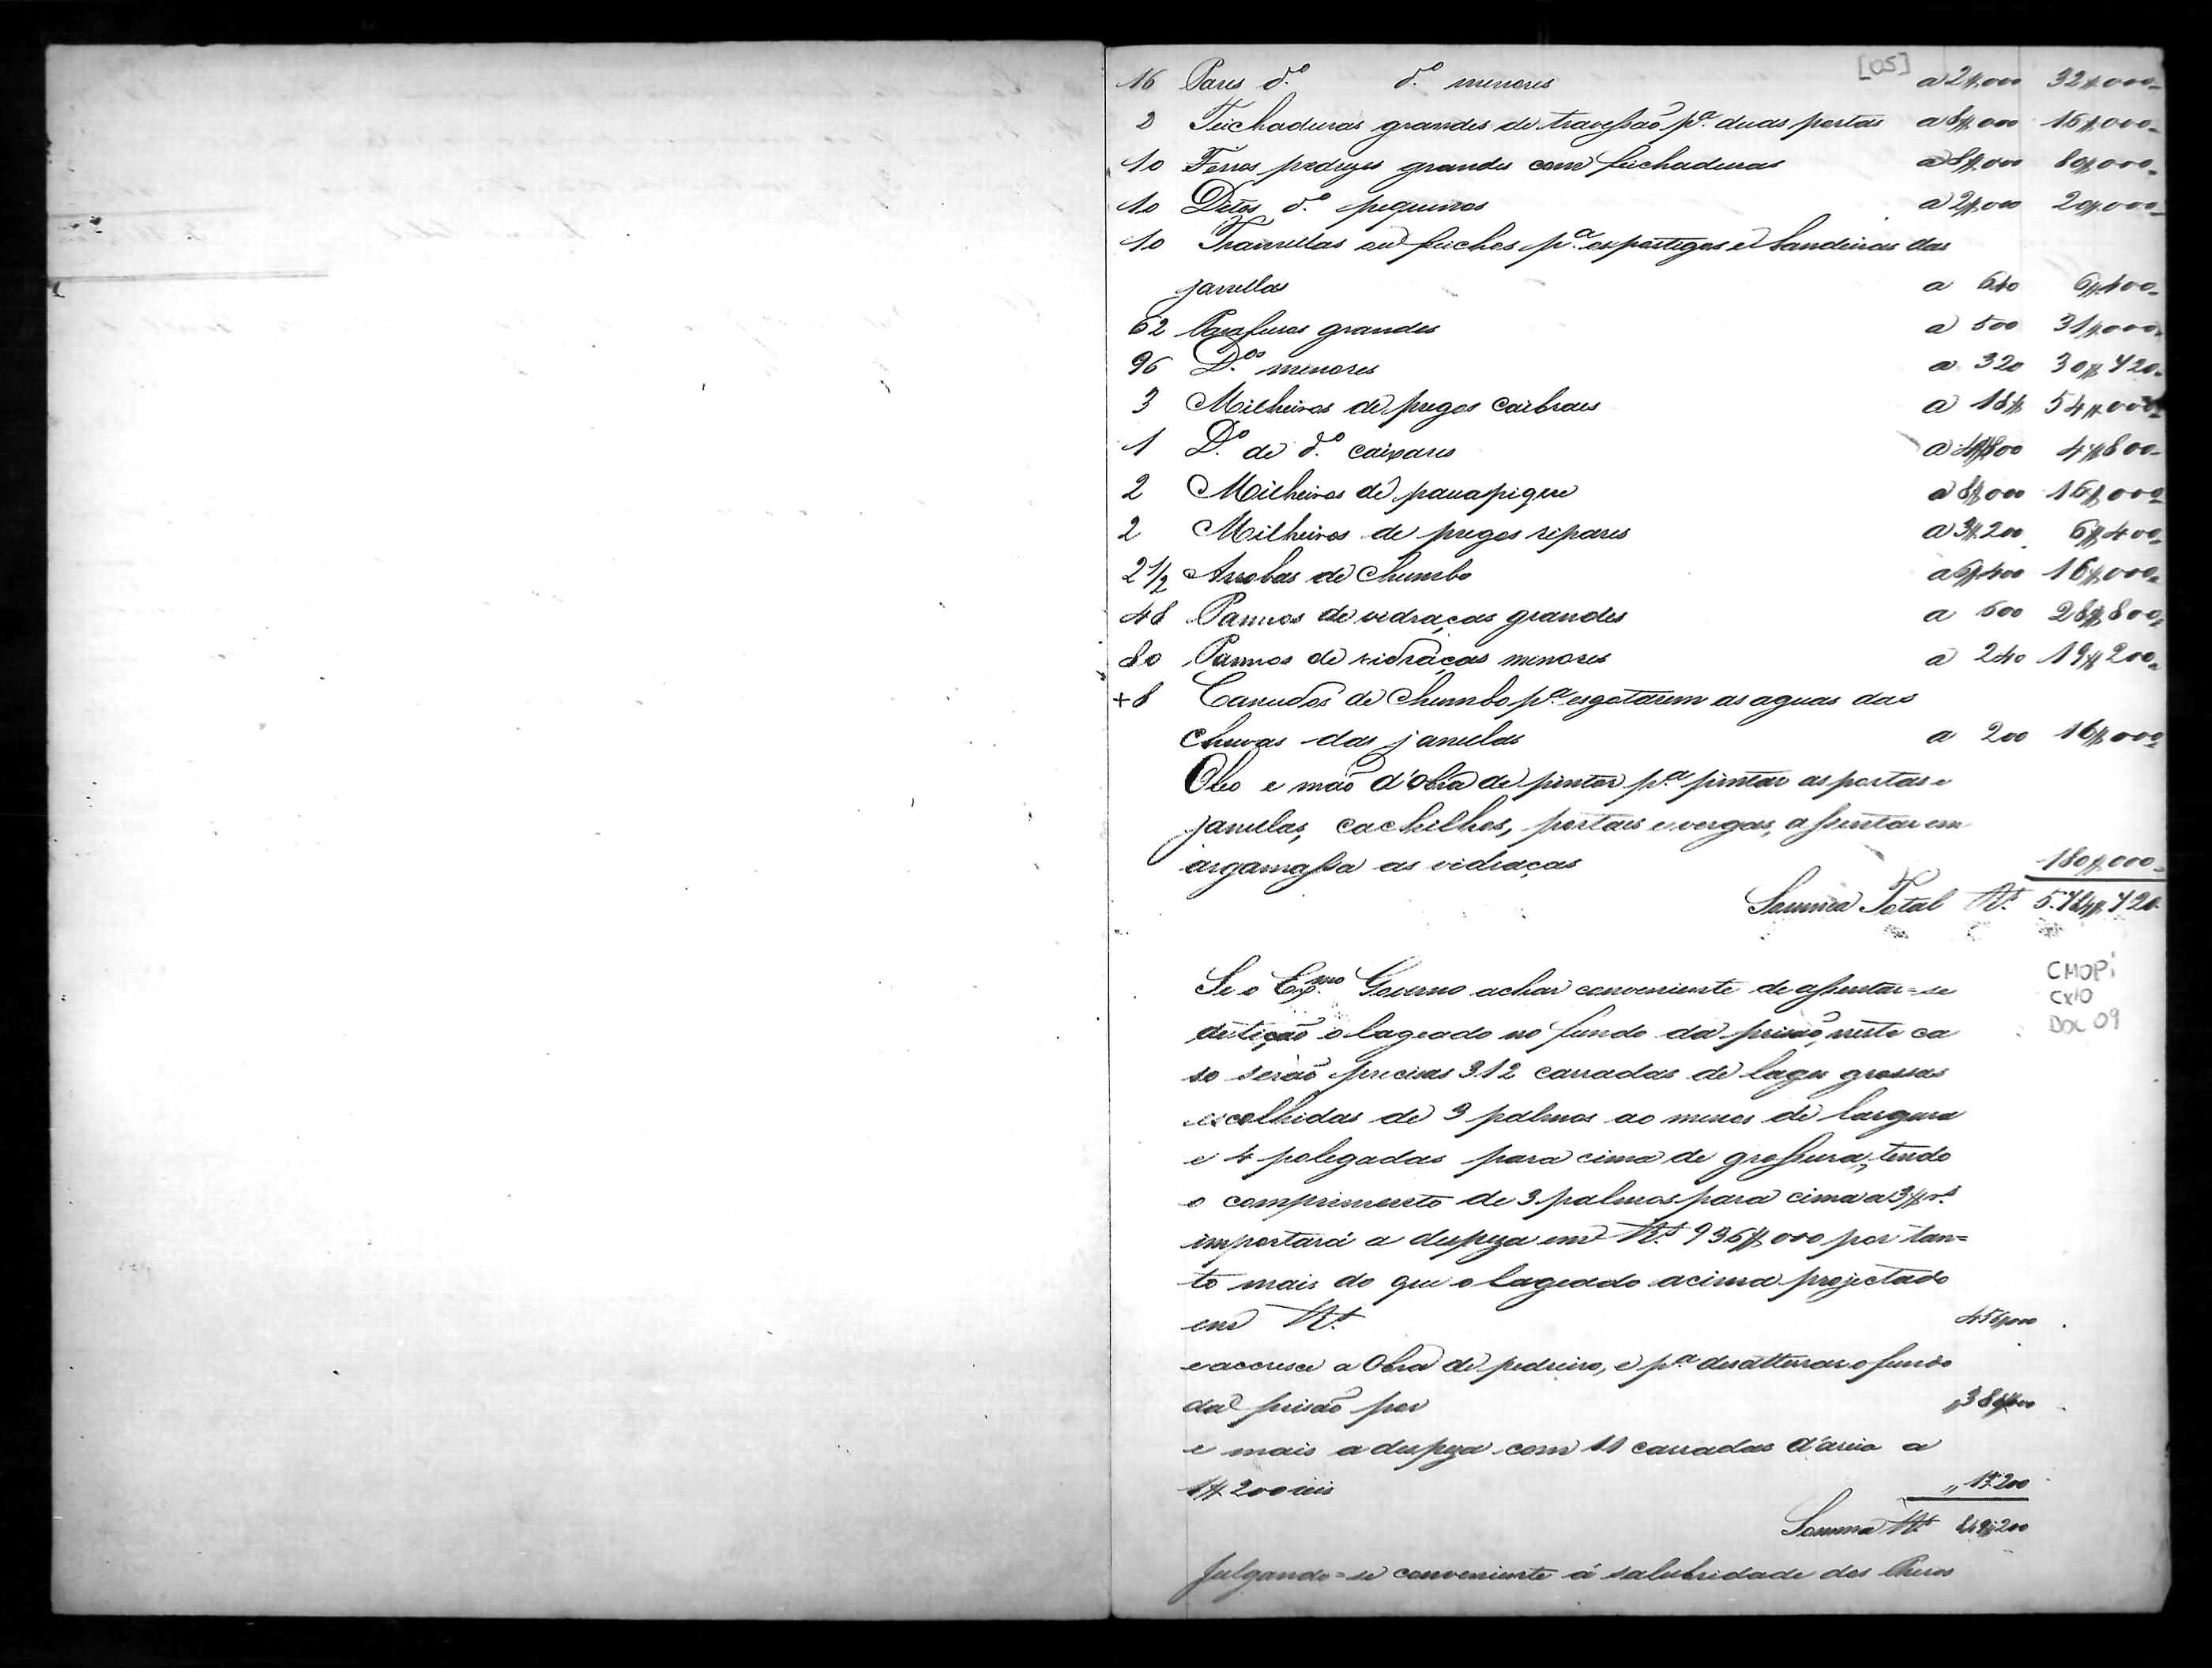 [05]
16 Pares d.º d.º menores a 2$000 32$000
2 Feichaduras grandes de travessão p.ª duas portas a 8$000 16$000
10 Ferros pedreses grandes com feichaduras a 8$000 80$000
10 Ditos d.º pequenos a 2$000 20$000
10 Tranellas ou feichos p.ª os postigos e bandeiras das
janellas a 640 6$400
62 Parafusos grandes a 500 31$000
96 D.os menores a 320 30$720
3 Milheiros de pregos caibraes a 18$ 54$000
1 D.º de d.º caixares a 4$800 4$800
2 Milheiros de pauapique a 8$000 16$000
2 Milheiros de pregos ripares a 3$200 6$400
2 1/2 Arrobas de chumbo a 6$400 16$000
48 Pannos de vidraças grandes a 600 28$800
80 Pannos de vidraças menores a 240 19$200
+8 Canudos de chumbo p.ª esgotarem as aguas das
chuvas das janellas a 200 16$000
Oleo e mão d'obra de pintor p.ª pintar as portas e
janellas, cachilhos, portaes e vergas, assentar em
argamassa as vidraças 180$000
Somma Total R.s 5.784$720
Se o Ex.mo Governo achar conveniente de assentar=se
de tição o lageado no fundo da prisão, neste ca
so serão precisas 312 carradas de lages grossas
escolhidas de 3 palmos ao menos de largura
e 4 polegadas para cima de grossura, tendo
o comprimento de 3 palmos para cima a 3$r.s
importará a despeza em R.s 936$000 por tan=
to mais do que o lageado acima projectado
em R.s 456$000
e accresce a Obra de pedreiro, e p.ª desatterrar o fundo
da prisão por " 380$000
e mais a despeza com 11 carradas d'areia a
1$200 reis " 13$200
Somma R.s 849$200
Julgando=se conveniente á salubridade dos Presos
CMOPi
Cx10
Doc 09